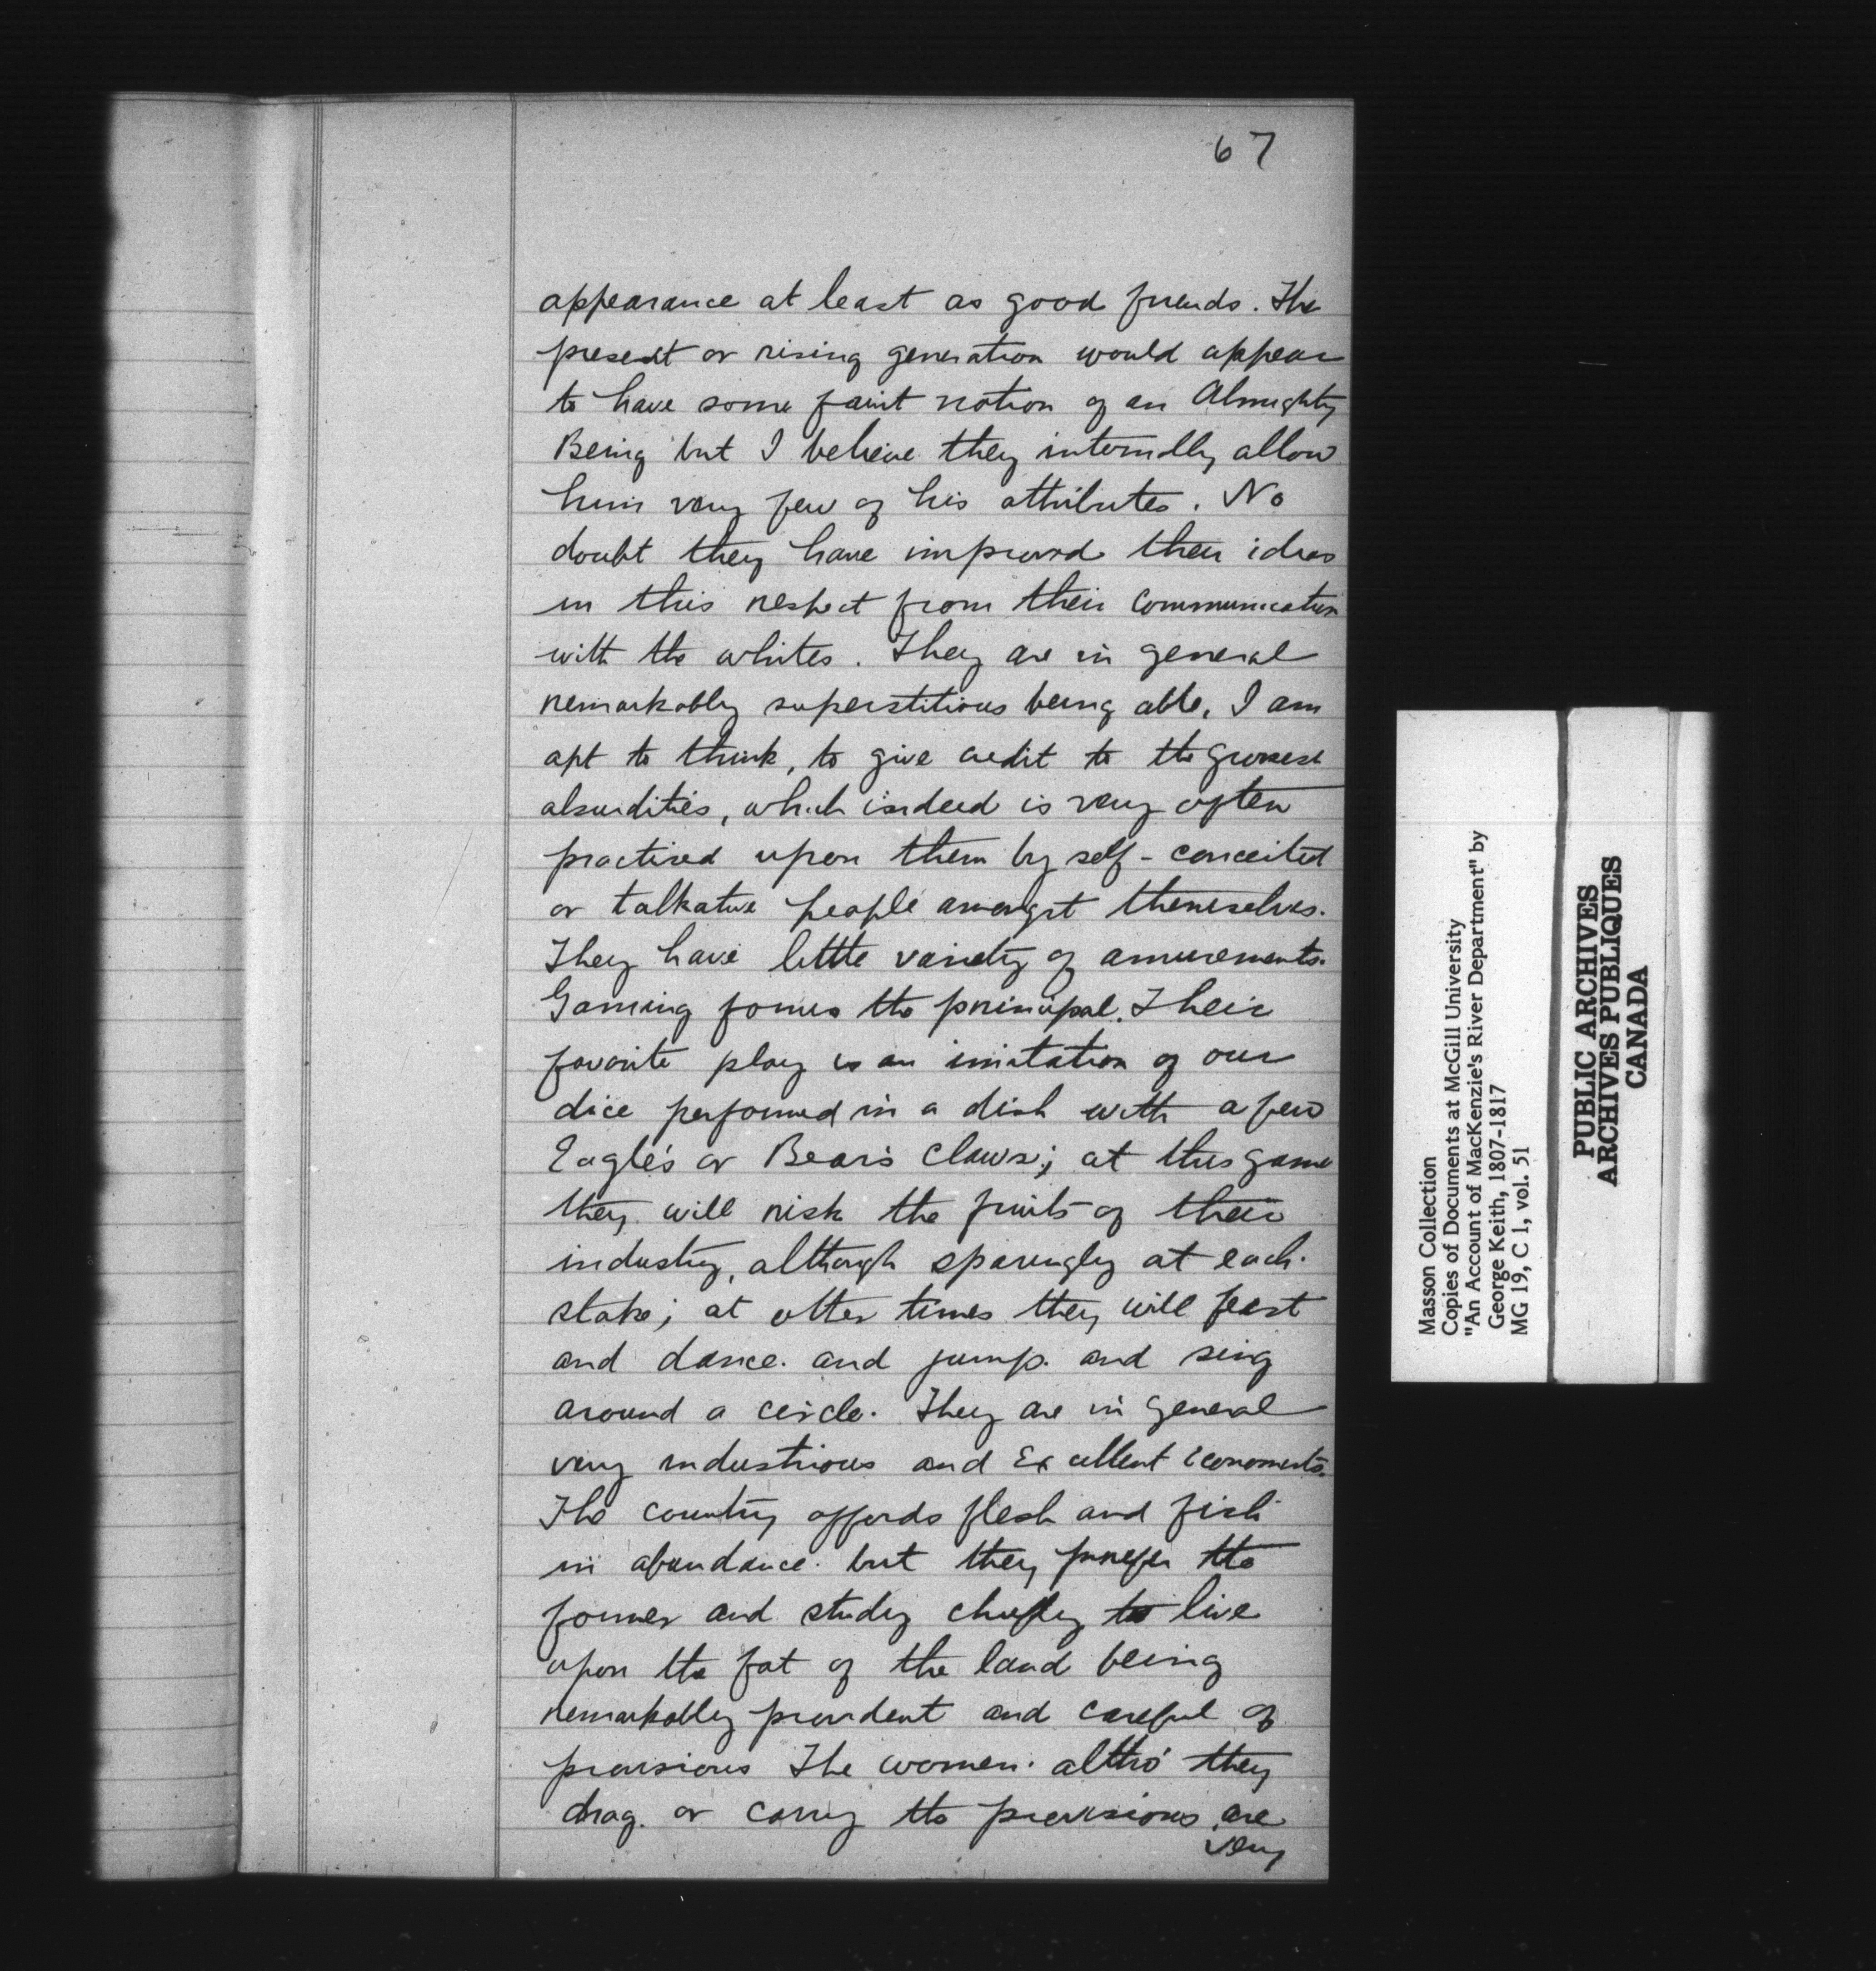 67
appearance at least as good friends. The
present or rising generation would appear
to have some faint notion of an Almighty
Being but I believe they internally allow
him very few of his attributes. No
doubt they have improved their ideas
in this respect from their communication
with the whites. They are in general
remarkably superstitious being able, I am
apt to think, to give credit to the grossest
absurdities, which indeed is very often
practised upon them by self-conceited
or talkative people amongst themselves.
They have little variety of amusements.
Gaming forms the principal. Their
favorite play is an imitation of our
dice performed in a dish with a few
Eagle's or Bear's claws; at this game
they will risk the fruits of their
industry, although sparingly at each
stake; at other times they will feast
and dance and jump and sing
around a circle. They are in general
very industrious and Excellent Economists.
The country affords flesh and fish
in abundance but they prefer the
former and study chiefly to live
upon the fat of the land being
remarkably provident and careful of
provisions The women altho' they
drag or carry the provisions are
very
Masson Collection
Copies of Documents at McGill University
"An Account of MacKenzie's River Department" by
George Keith, 1807-1817
MG 19, C 1, vol. 51
PUBLIC ARCHIVES
ARCHIVES PUBLIQUES
CANADA